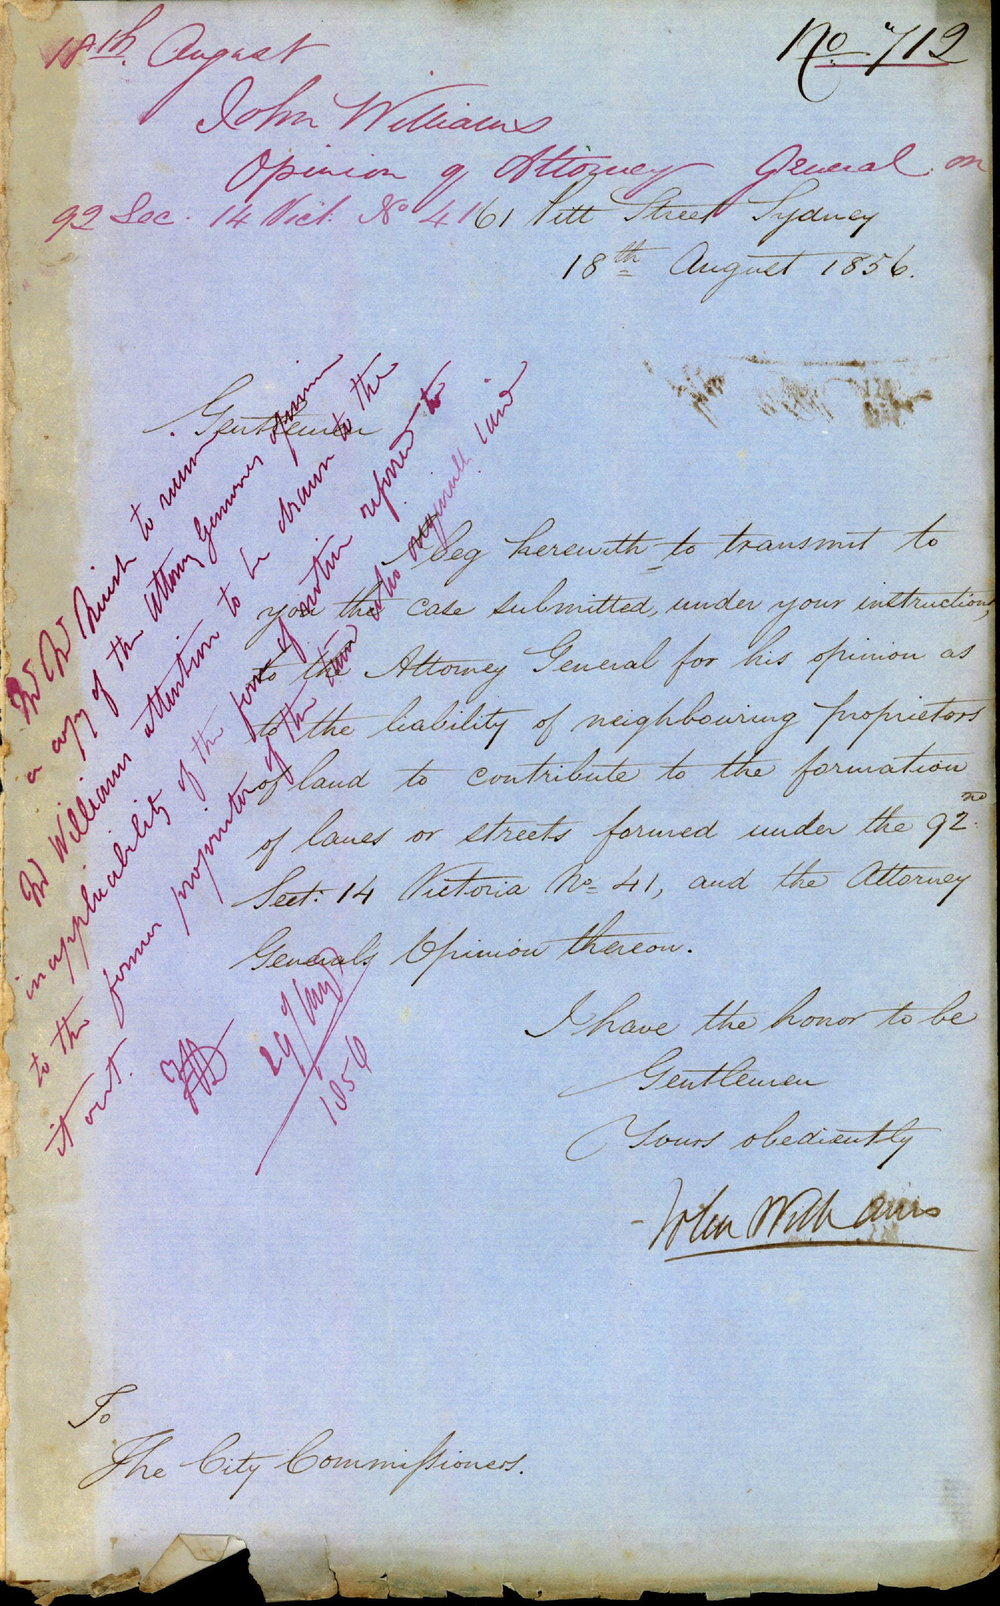 18th. August
No. 712
John Williams
Opinion of Attorney General on
92 Sec. 14 Vict. No 41
161 Pitt Street Sydney
18th August 1856.
Gentlemen
I beg herewith to transmit to
you the case submitted, under your instructions,
to the Attorney General for his opinion as
to the liability of neighbouring proprietors
of land to contribute to the formation
of lanes or streets formed under the 92nd.
Sect: 14 Victoria No. 41, and the Attorney
General's Opinion thereon.
I have the honor to be
Gentlemen
Yours obediently
John Williams
To
The City Commissioners.
a copy of the Attorney Generals opinion
Mr Williams attention to be drawn to the
inapplicability of the form of notice referred to
to the former proprietor of the land who originally laid
it out.
29/Augt
1856